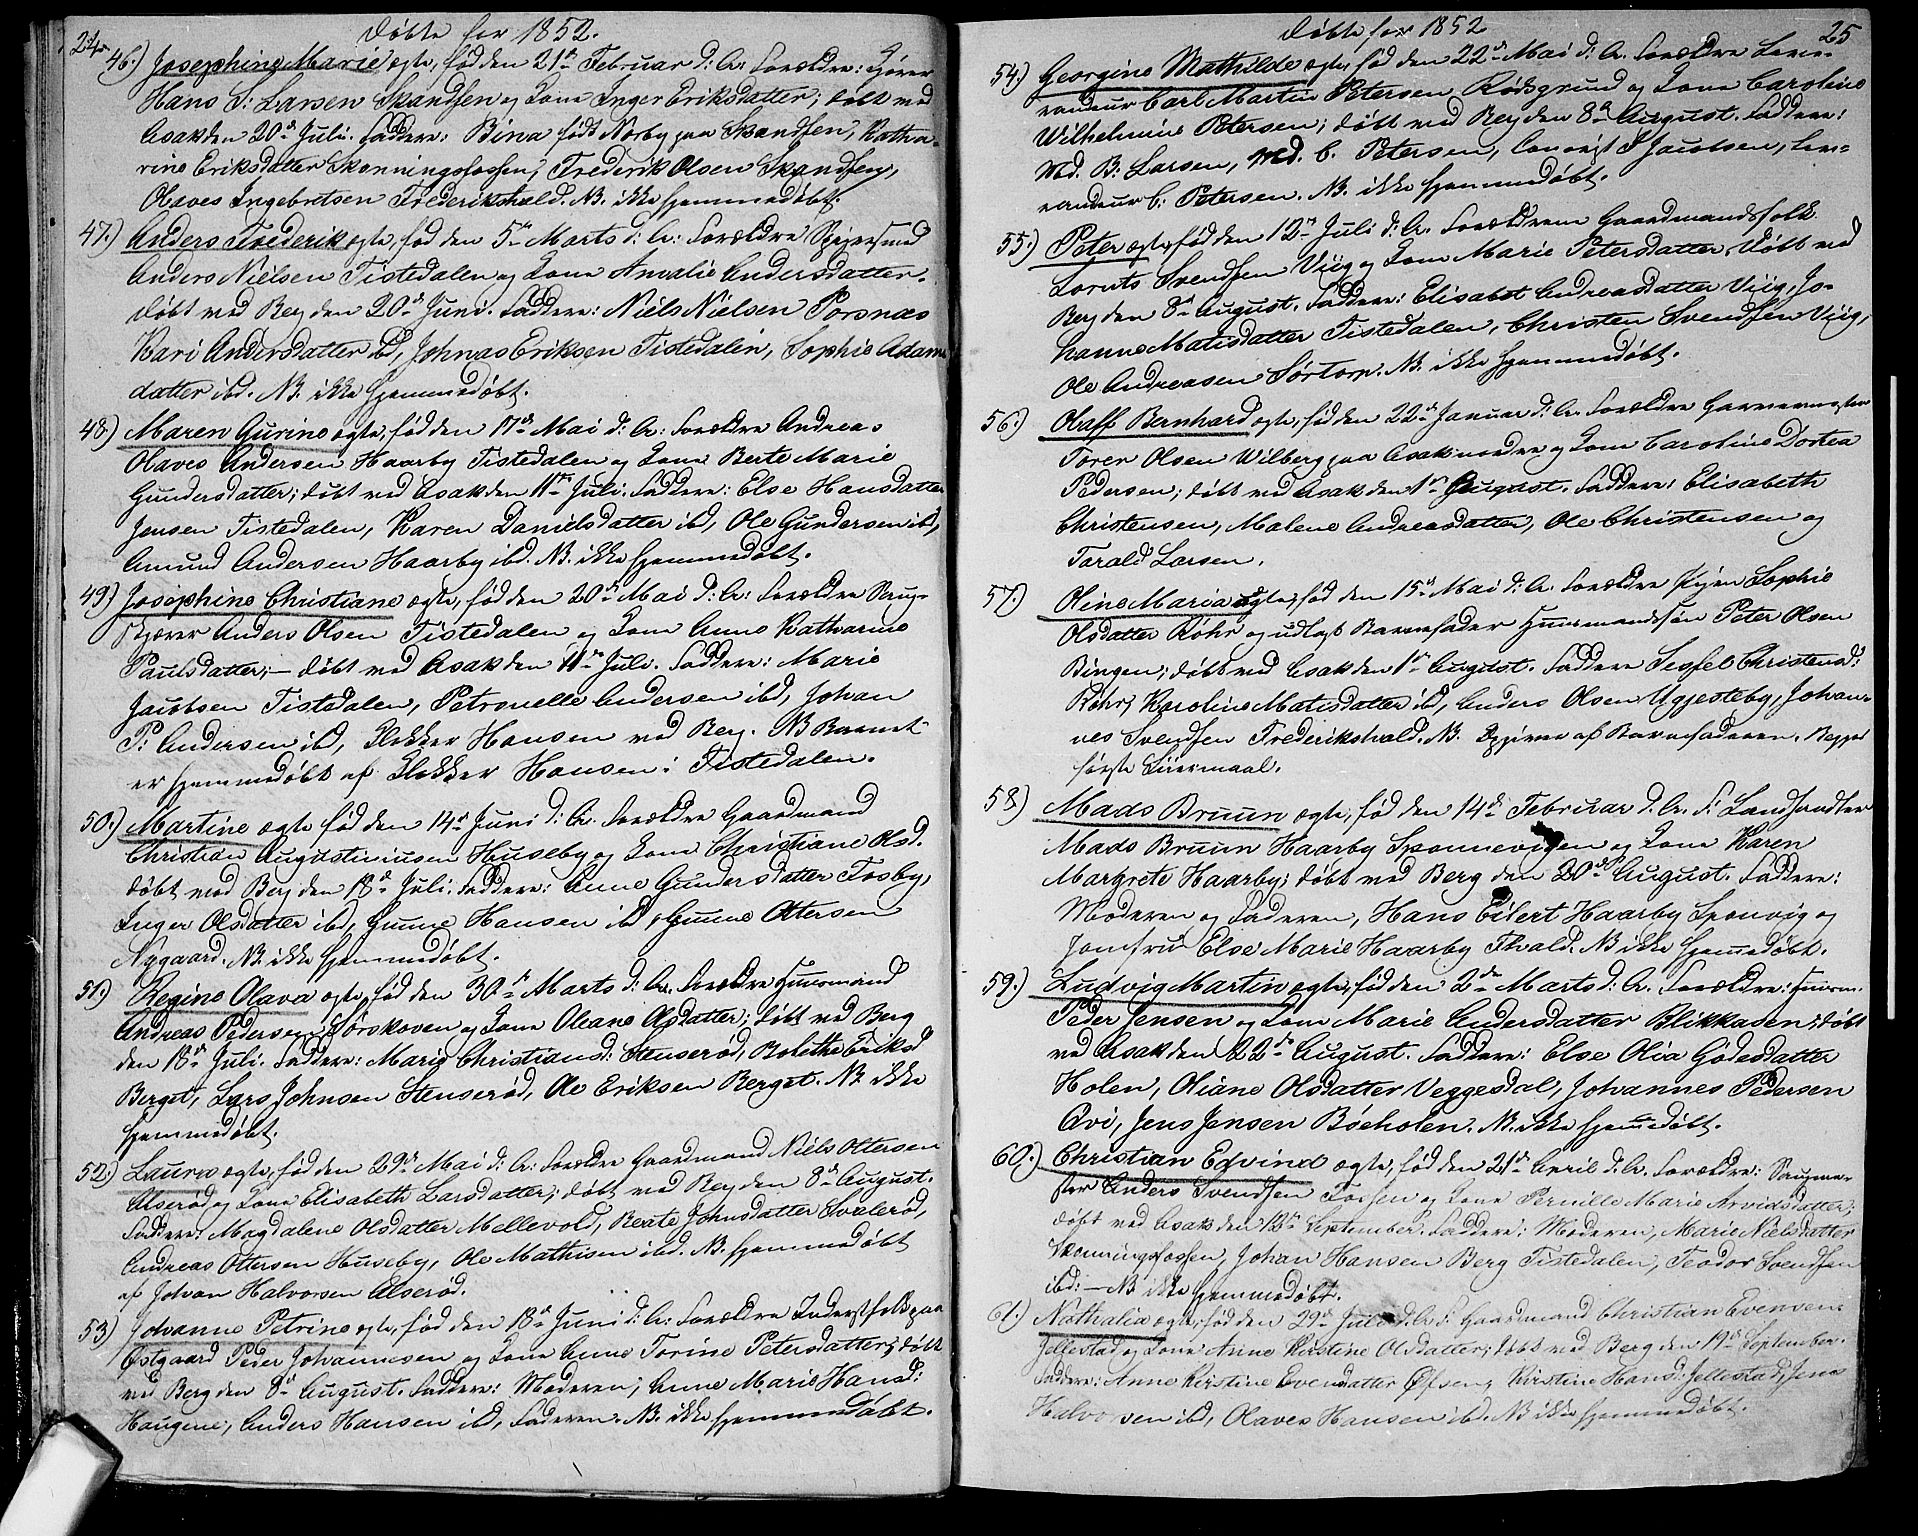 24.
Døbte for 1852.
46.) Josephine Marie ægte, fød den 21de Februar d: A: Forældre:
Hans S: Larsen Skandsen og Kone Inger Eriksdatter; døbt ved
Asak den 20de Juli. Faddere: Bina født Norby paa Skandsen, Katha-
rine Eriksdatter Skonningsfossen, Frederik Olsen Skandsen,
Olaves Ingebretsen Frederikshald. NB. ikke hjemmedøbt.
47.) Anders Frederik ægte, fød den 5te Marts d: A: Forældre Spigersmed
Anders Nielsen Tistedalen og Kone Amalie Andersdatter.
døbt ved Berg den 20de Juni. Faddere: Niels Nielsen Porsnæs
Kari Andersdatter ibd, Johnas Eriksen Tistedalen, Sophie Adams
datter ibd. NB. ikke hjemmedøbt.
48.) Maren Gurine ægte, fød den 17de Mai d: A: Forældre Andreas
Olaves Andersen Haarby Tistedalen og Kone Berte Marie
Gundersdatter; døbt ved Asak den 11te Juli. Faddere: Else Hansdatter
Jensen Tistedalen, Karen Danielsdatter ibd, Ole Gundersen ibd,
Amund Andersen Haarby ibd. NB. ikke hjemmedøbt.
49.) Josephine Christiane ægte, fød den 20de Mai d: A: Forældre Saug-
skjærer Anders Olsen Tistedalen og Kone Anne Katharine
Paulsdatter; — døbt ved Asak den 11te Juli. Faddere: Marie
Jacobsen Tistedalen, Petronelle Andersen ibd, Johan
P: Andersen ibd, Klokker Hansen ved Berg. NB Barnet
er hjemmedøbt af Klokker Hansen i Tistedalen.
50.) Martine ægte fød den 14de Juni d: A: Forældre Gaardmand
Christian Augustiniusen Huseby og Kone Christiane Olsd.
døbt ved Berg den 18de Juli. Faddere: Anne Gundersdatter Fosby,
Inger Olsdatter ibd, Gunne Hansen ibd, Gunne Ottersen
Nygaard. NB. ikke hjemmedøbt.
51.) Regine Olava ægte, fød den 30te Marts d: A. Forældre Huusmand
Andreas Pedersen Sørskoven og Kone Oleane Olsdatter; døbt ved Berg
den 18de Juli. Faddere: Marie Christiansd: Stenserød, Bolethe Eriksd
Berget, Lars Johnsen Stenserød, Ole Eriksen Berget. NB. ikke
hjemmedøbt.
52.) Laura ægte, fød den 29de Mai d: A: Forældre Gaardmand Niels Ottersen
Alserød og Kone Elisabeth Larsdatter; døbt ved Berg den 8de August.
Faddere: Magdalene Olsdatter Mellevold, Beate Johnsdatter Svalerød,
Andreas Ottersen Huseby, Ole Mathisen ibd. NB. hjemmedøbt
af Johan Halvorsen Alserød.
53) Johanne Petrine ægte, fød den 18de Juni d: A: Forældre Inderstfolk paa
Østgaard Peder Johannesen og Kone Anne Torine Petersdatter; døbt
ved Berg den 8de August. Faddere: Moderen, Anne Marie Hansd:
Haugene, Anders Hansen ibd, Faderen. NB. ikke hjemmedøbt.
Døbte for 1852
25
54.) Georgine Mathilde ægte, fød den 22de Mai d: A. Forældre
Carl Martin Petersen Rødsgrund og Kone Caroline
Wilhelmine Petersen; døbt ved Berg den 8de August. Faddere:
Mad. B. Larsen, Mad. C. Petersen, Jacobsen,
C: Petersen. NB. ikke hjemmedøbt.
55.) Peter ægte, fød den 12te Juli d: A. Forældrene Gaardmandsfolk
Lornts Svendsen Viig og Kone Marie Petersdatter. døbt ved
Berg den 8de August. Faddere: Elisabet Andreasdatter Viig, Jo-
hanne Matisdatter Tistedalen, Christen Svendsen Viig,
Ole Andreasen Sørtorp. NB. ikke hjemmedøbt.
56.) Olaff Bernhard ægte, fød den 22de Januar d: A. Forældre Garvermester
Torer Olsen Wilberg paa Asak nordre og Kone Caroline Dortea
Pedersen; døbt ved Asak den 1ste August. Faddere: Elisabeth
Christensen, Malene Andreasdatter, Ole Christensen og
Tarald Larsen.
57.) Oline Maria uægte, fød den 15de Mai d: A. Forældre Pigen Sophie
Olsdatter Røhr og udlagt Barnefader Huusmandssøn Peter Olsen
Bingen; døbt ved Asak den 1ste August. Faddere Sessel Christensd:
Røhr, Karoline Matisdatter ibd, Anders Olsen Ugjesteby, Johan-
nes Svendsen Frederikshald. NB. Opgiven af Barnefaderen. Begges
første Leiermaal.
58.) Mads Bruun ægte, fød den 14de Februar d. A. F: Landhandler
Mads Bruun Haarby Sponnevigen og Kone Karen
Margrete Haarby; døbt ved Berg den 20de August. Faddere:
Moderen og Faderen, Hans Eidert Haarby Sponvig og
Jomfru Else Marie Haarby Fhald. NB ikke hjemmedøbt.
59.) Ludvig Martin ægte, fød den 2den Marts d: A. Forældre: Huusm.
Peder Jensen og Kone Marie Andersdatter Blikkasen; døbt
ved Asak den 22de August. Faddere: Else Olia Gødesdatter
Holen, Oliane Olsdatter Veggesdal, Johannes Pedersen
Qvi, Jens Jensen Bøeholen. NB. ikke hjemmedøbt.
60.) Christian Edvind ægte, fød den 21de April d. A. Forældre: Saugme-
ster Anders Svendsen Fossen og Kone Pernille Marie Arvidsdatter;
døbt ved Asak den 12te September. Faddere: Moderen, Marie Nielsdatter
Skonningsfossen, Johan Hansen Berg Tistedalen, Teodor Svendsen
ibd: — NB ikke hjemmedøbt.
61.) Nathalia ægte, fød den 29de Juli d: A: F: Gaardmand Christian Evensen
Jellestad og Kone Anne Kirstine Olsdatter; døbt ved Berg den 19de September.
Faddere: Anne Kirstine Evensdatter Kirstine Hansd: Jellestad, Jens
Halvorsen ibd, Olaves Hansen ibd. NB ikke hjemmedøbt.